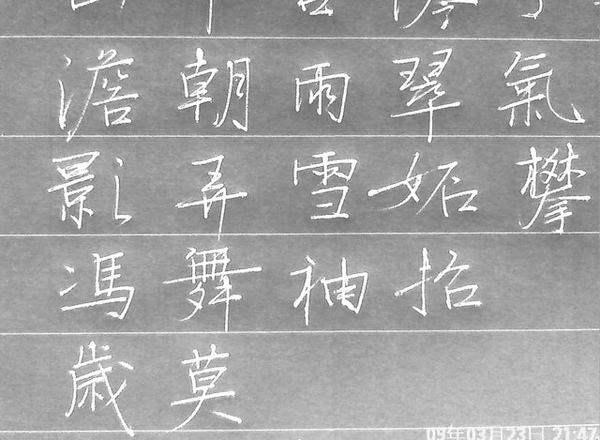 澹朝雨翠氣
影弄雪妬攀
馮舞袖招
歲莫
09年03月23日 21:47